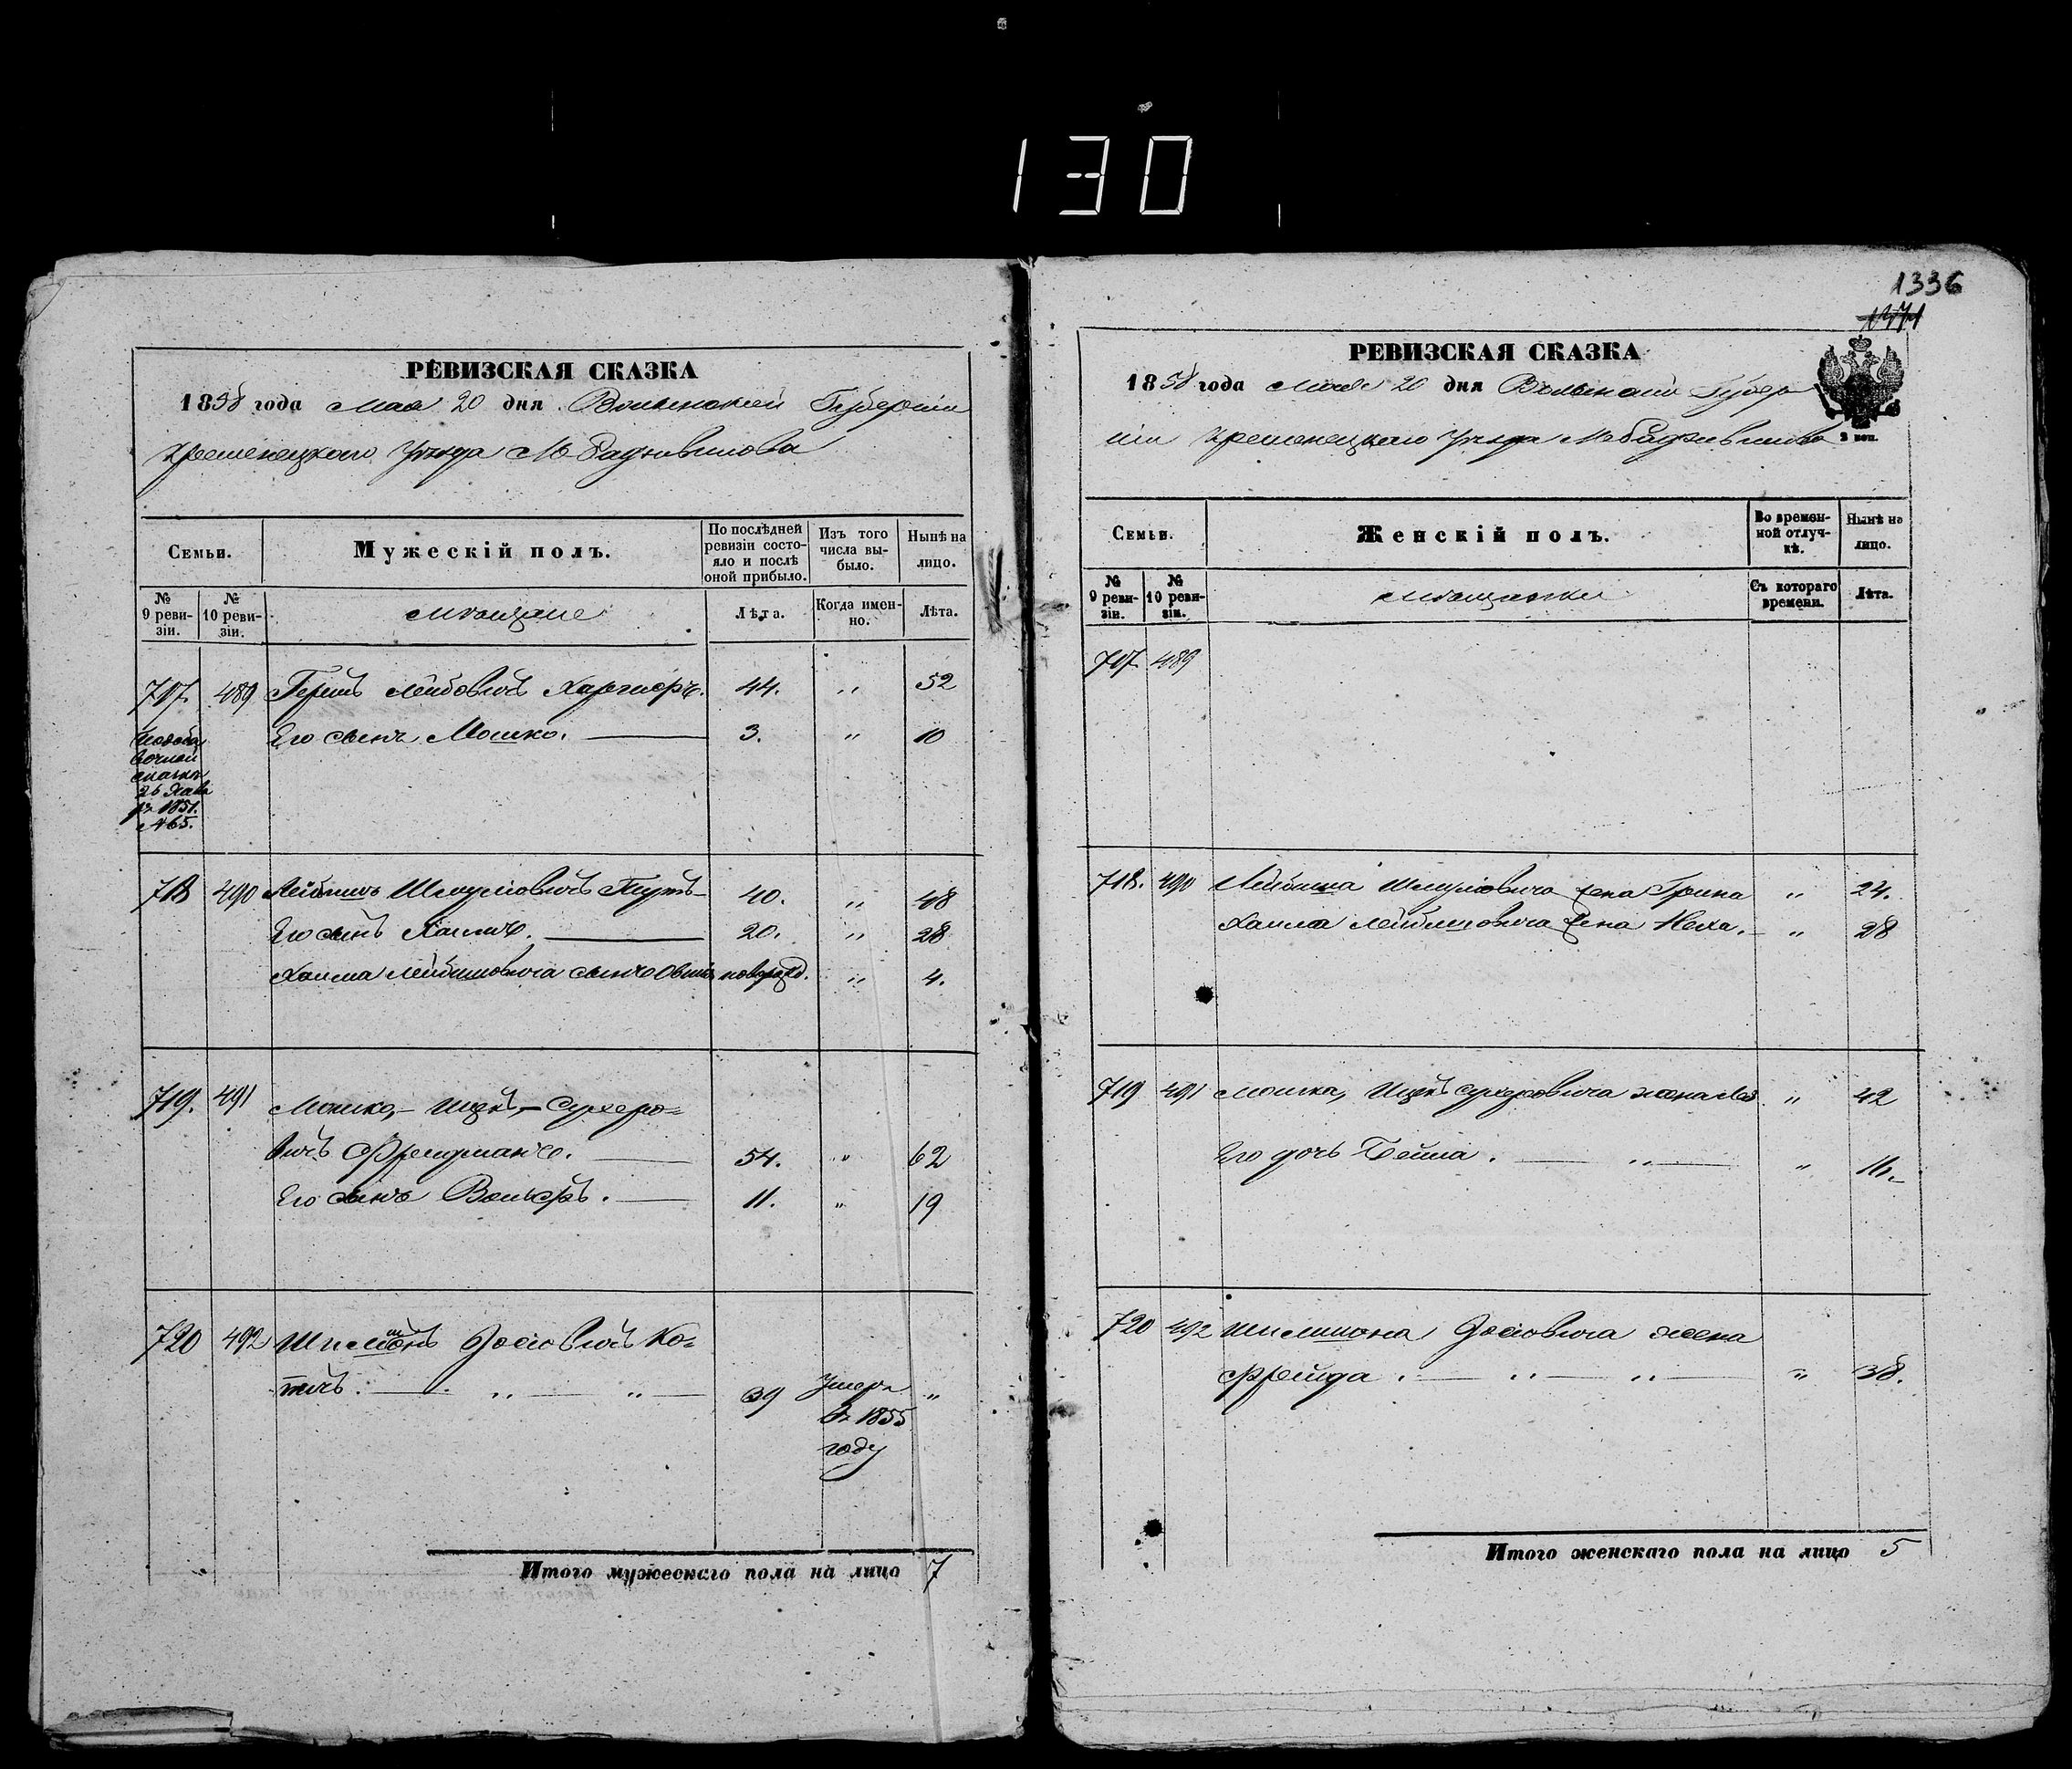 130
РЕВИЗСКАЯ СКАЗКА
1858 года Мая 20 дня Волынской Губерніи
Кременецкаго Уѣзда М Радзивилова
Семьи.
Мужескій полъ.
По послѣдней ревизіи состо-
яло и послѣ
оной прибыло.
Изъ того
числа вы-
было.
Нынѣ на
лицо.
№
9 реви-
зіи.
№
10 реви-
зіи.
Мѣщане
Лѣта.
Когда имен-
но.
Лѣта.
707. 489 Гершъ Лейбовичъ 44. " 52
Его сынъ Мошко. 3. " 10
1851.
№65.
718 490 Лейбишъ Шмулiовичъ 40. " 48
Его сынъ Хаимъ. 20. " 28
Хаима Лейбишовича сынъ новорожд. " 4.
719. 491 Мошко,- Ицкъ,- Сухеро=
вичъ Фрейдманъ. 54. " 62
Его сынъ Вольфъ. 11. " 19
720 492 Шимшонъ Іосіовичъ Ко=
39 Умеръ "
въ 1855
году
Итого мужескаго пола на лицо 7
1336
РЕВИЗСКАЯ СКАЗКА
1858 года Мая 20 дня Волынской Губер
ніи Кременецкаго Уѣзда М Радзивилова
2 коп.
Семьи.
Женскій полъ.
Во времен-
ной отлуч-
кѣ.
Нынѣ на
лицо.
№
9 реви-
зіи.
№
10 реви-
зіи.
Мѣщанки
Съ котораго
времени.
Лѣта.
707. 489
718. 490 Лейбиша Шмулiовича жена " 24.
Хаима Лейбишовича жена Неха. " 28
719 491 Мошка, Ицка Сухеровича жена " 42
Его дочь Бейла. " 16.
720 492 Шимшона Іосіовича жена
Фрейда. " 38.
Итого женскаго пола на лицо 5